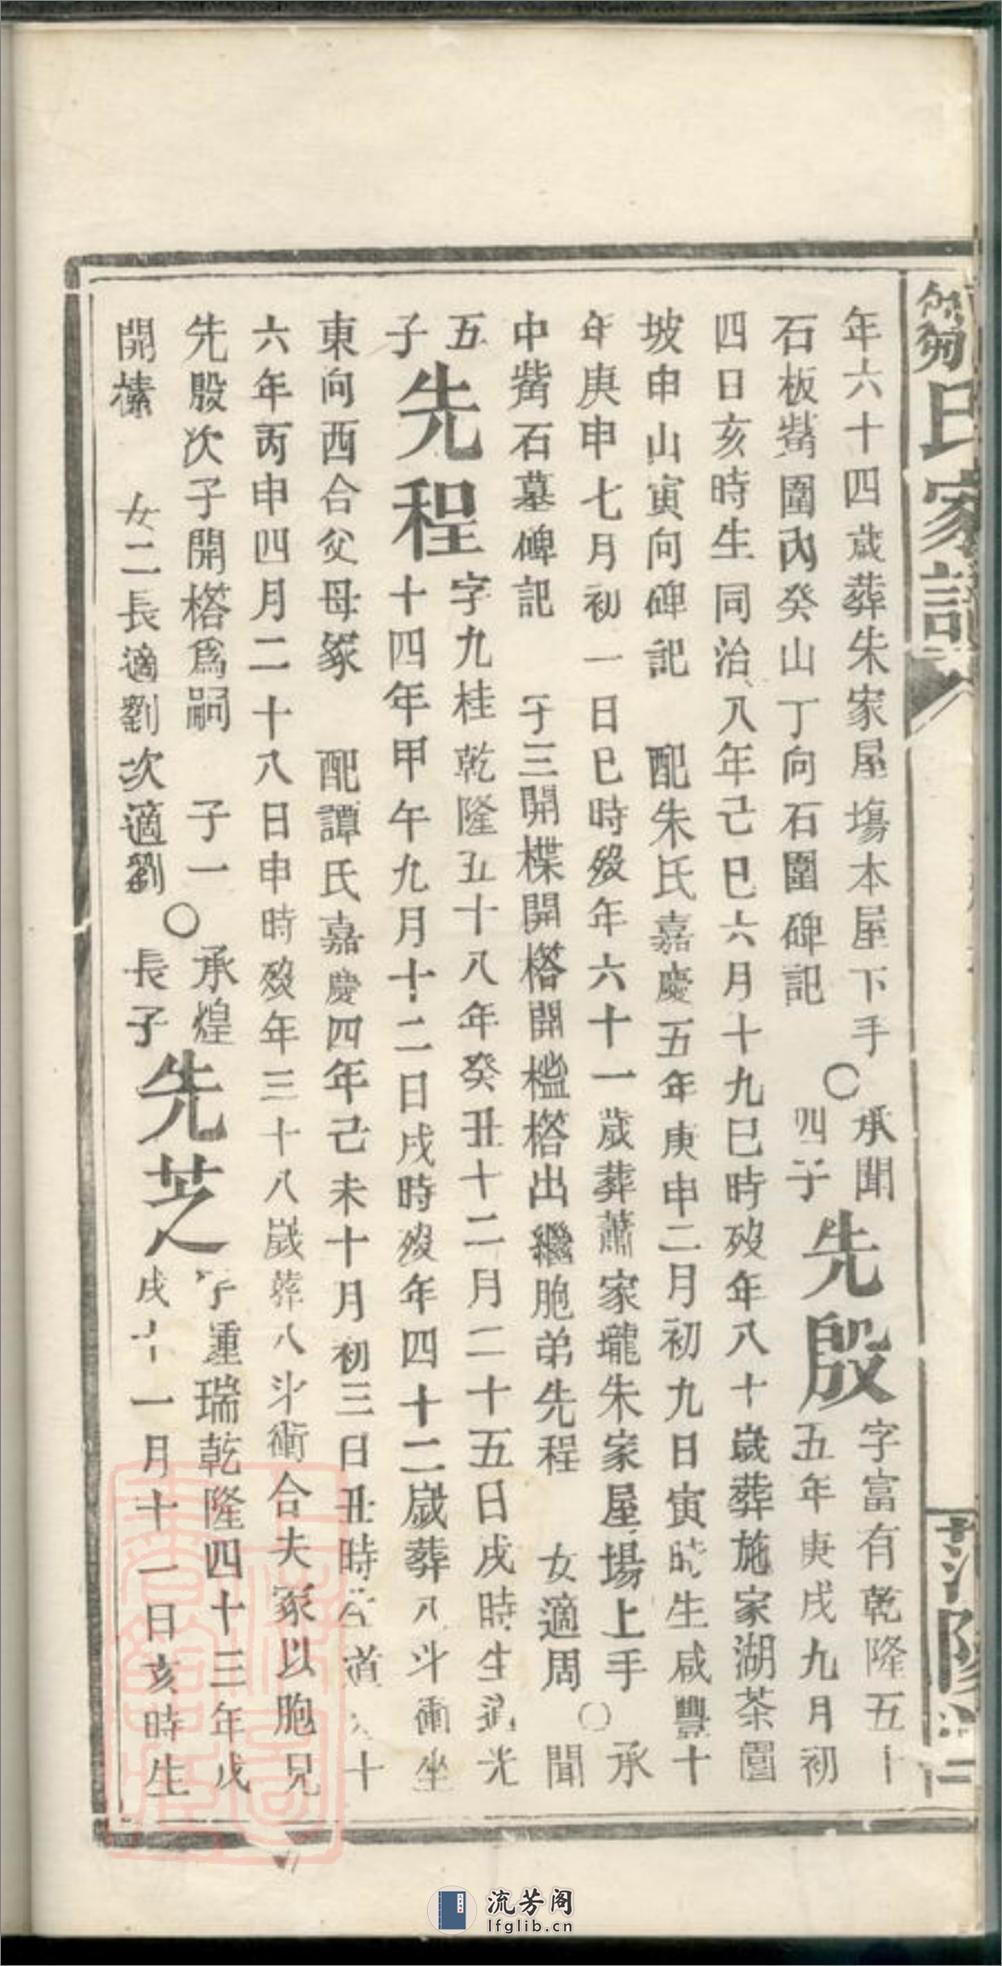 鄒氏家譜
年六十四歲葬朱家屋塲本屋下手○承聞四子先殷字富有乾隆五十
石板茔圍內癸山丁向石圍碑記 五年庚戌九月初
四日亥時生同治八年己巳六月十九巳時歿年八十歲葬施家湖茶園
坡申山寅向碑記 配朱氏嘉慶五年庚申二月初九日寅時生咸豐十
年庚申七月初一日巳時歿年六十一歲葬蕭家壠朱家屋場上手○承
中茔石墓碑記 子三開楪開榙開槛榙出繼胞弟先程 女適周 聞
五先程字九桂乾隆五十八年癸丑十二月二十五日戌時生道光
子 十四年甲午九月十二日戌時歿年四十二歲葬八斗衝坐
東向西合父母冢 配譚氏嘉慶四年己未十月初三日丑時 道 十
六年丙申四月二十八日申時歿年三十八歲葬八斗衝合夫冢以胞兄
先殷次子開榙爲嗣 子一○承煌長子先芝字 瑞乾隆四十三年戊
開榛 女二長適劉次適劉 戌十一月十一日亥時生
流芳阁
lfglib.cn